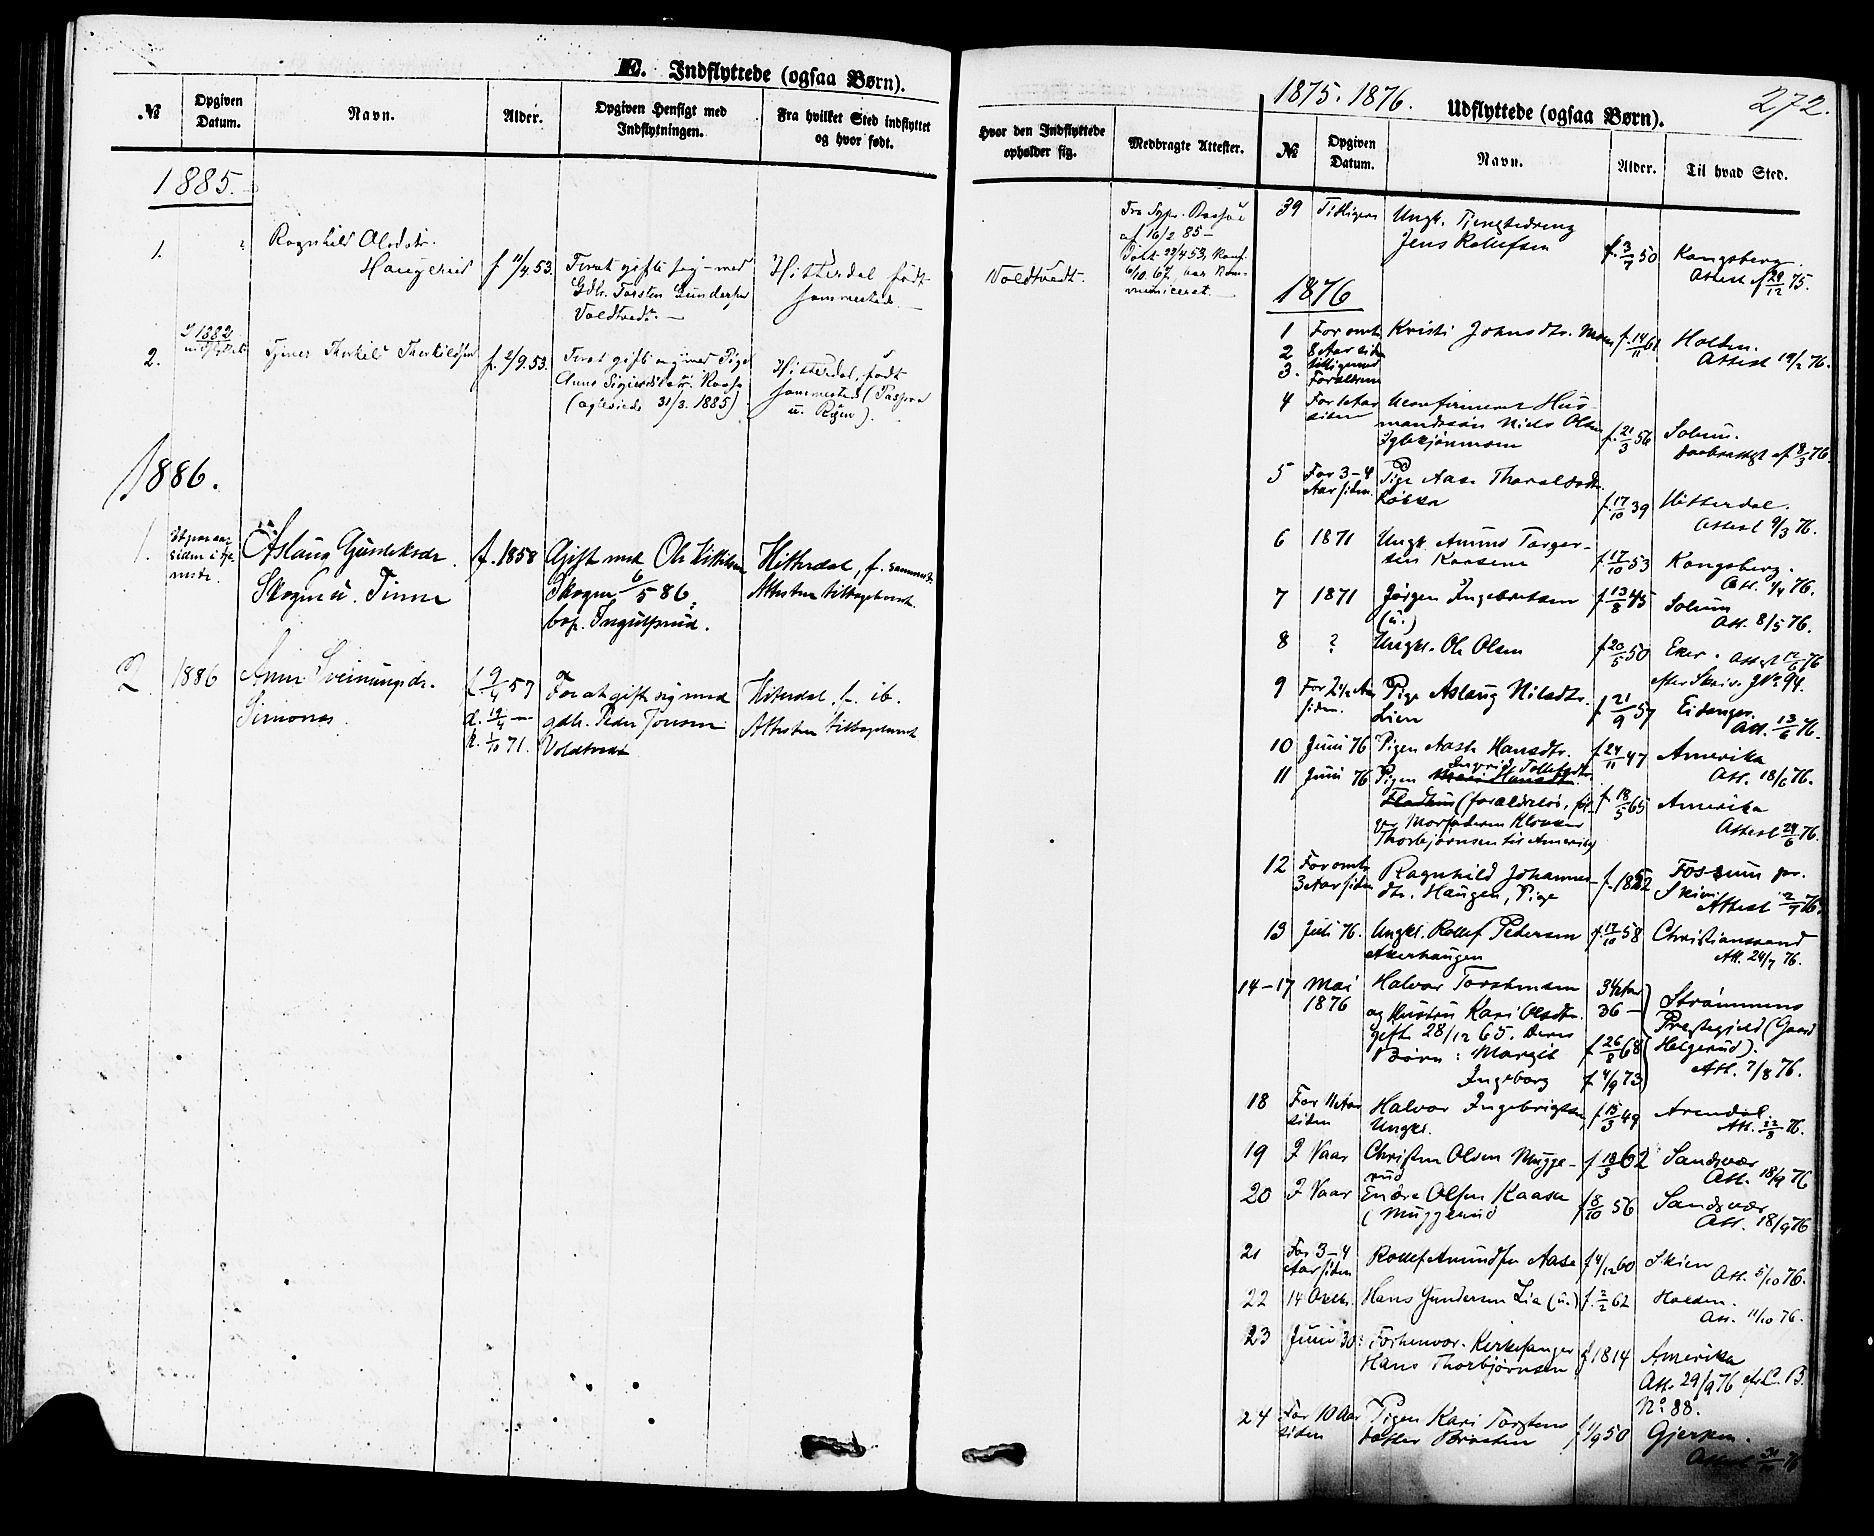 E. Indflyttede (ogsaa Børn).
№
Opgiven Datum.
Navn.
Alder.
Opgiven Hensigt med Indflytningen.
Fra hvilket Sted indflyttet og hvor født.
1885.
1.
Ragnhild Olsdtr.
Haugerud
f 11/4 53.
For at gifte sig med
Gdbr. Torsten Gundersen
Voldtvedt.
Hitterdal født
sammesteds
2.
I 1882
Thorkild Thorkildsen
f. 2/9. 53.
For at gifte sig med Pige
(aglysede 31/3. 1885)
Hitterdal, født
sammesteds
1886.
1.
Aslaug Gunleiksdr.
Skogen u. Tinne
f. 1858
Gift med Ole Kittilsen
Skogen 6/5 86,
bop. Ingulfsrud.
Hitterdal, f. sammest.
Attesten tilbagelevert.
2
1886
Anne Sveinungsdr.
Simones.
f. 9/4 57
d. 19/4 —
k. 1/10 71.
For at gifte sig med
gdb. Peder Jonsen
Voldtvedt
Hiterdal, f. ib.
Attesten tilbagelevert
Hvor den Indflyttede opholder sig.
Medbragte Attester.
Voldtvedt.
af 16/2 85 —
Døbt 29/4 53, Konf.
6/10 67, har Kom-
municeret.
1875. 1876.
Udflyttede (ogsaa Børn).
272.
№
Opgiven Datum.
Navn.
Alder.
Til hvad Sted.
39
Tidligere
Ungk. Tjenestedreng
Jens Rollefsen
f. 3/7 50
Kongsberg.
Attest af 29/12 75.
1876
1
2
3.
For omtr.
8 Aar siden
tilligemed
Forældrene
Kristi Johnsdtr. Moen
f. 14/11 61
Holden.
Attest 19/2 76.
4
For 1 Aar
siden
Uconfirmeret Hus-
mandssøn Niels Olsen
f. 21/3 56
Solum.
af 8/3 76.
5
For 3-4
Aar siden.
Pige Aase Thoralds dtr.
Løkka
f. 17/10 39
Hitterdal.
Attest 9/3 76.
6
1871
Ungk. Amund Torger-
sen Kaasene
f 17/10 53
Kongsberg.
Att. 4/4 76.
7
1871
Jørgen Ingebretsen
(u.)
f 13/8 45
Solum
Att. 8/5 76.
8
?
Ungk. Ole Olsen
f 20/5 50
Eker. Attest 12/6 76
efter Skriv. J.No 94.
9
For 2½ Aar
siden.
Pige Aslaug Nilsdtr.
Lien
f 21/9 57
Eidanger
Att. 13/6 76.
10
Juni 76
Pigen Aaste Hansdtr.
f 24/11 47
Amerika
Att. 18/6 76.
11
Juni 76
Pigen Ingrid Tollefsdtr.
(forældreløs, føl-
ger Morfaderen Klokker
Thorbjørnsen til Amerika)
f 18/5 65
Amerika
Attest 24/6 76.
12
For omtr.
3 Aar siden
Ragnhild Johannes-
dtr. Haugen, Pige
f. 1852
Fossum pr.
Skien
Attest 2/7 76.
13
Juli 76.
Ungkl. Rollef Pedersen
Akerhaugen
f. 17/10 58
Christianssand
Att. 24/7 76.
14-17
Mai
1876
Halvor Torstensen
og Hustru Kari Olsdtr.
gifte 28/12 65. Deres
Børn: Margit
Ingeborg
34 Aar
36 —
f 26/8 68
f 4/9 73
Strømmens
Præstegield (Gaard
Helgerud).
Att. 7/8 76.
18
For 11 Aar
siden
Halvor Ingebrigtsen
Ungkl.
f 15/3 49
Arendal.
Att. 22/8 76.
19
I Vaar
Christen Olsen Mugge-
rud
f 18/3 62
Sandsvær
Att. 18/9 76
20
I Vaar
Endre Olsen Kaasa
(Muggerud
f 8/10 56
Sandsvær
Att. 18/9 76
21
For 3-4
Aar siden
Rollef Amundsen Aase
f 4/12 60
Skien
Att. 5/10 76.
22
14 Octb.
Hans Gundersen Lia (u.)
f. 2/2 62
Holden.
Att. 11/10 76.
23
Juni 30:
Forhenvær. Kirkesanger
Hans Thorbjørnsen
f 1814
Amerika
Att. 29/9 76 cfr. C. B.
No. 88.
24
For 10 Aar
siden
Pigen Kari Torstens
datter Braaten
f 4/9 50
Gjerpen.